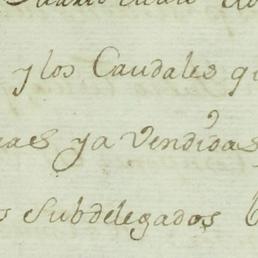 y los Caudales q
as ya Vendidas
s Subdelegados